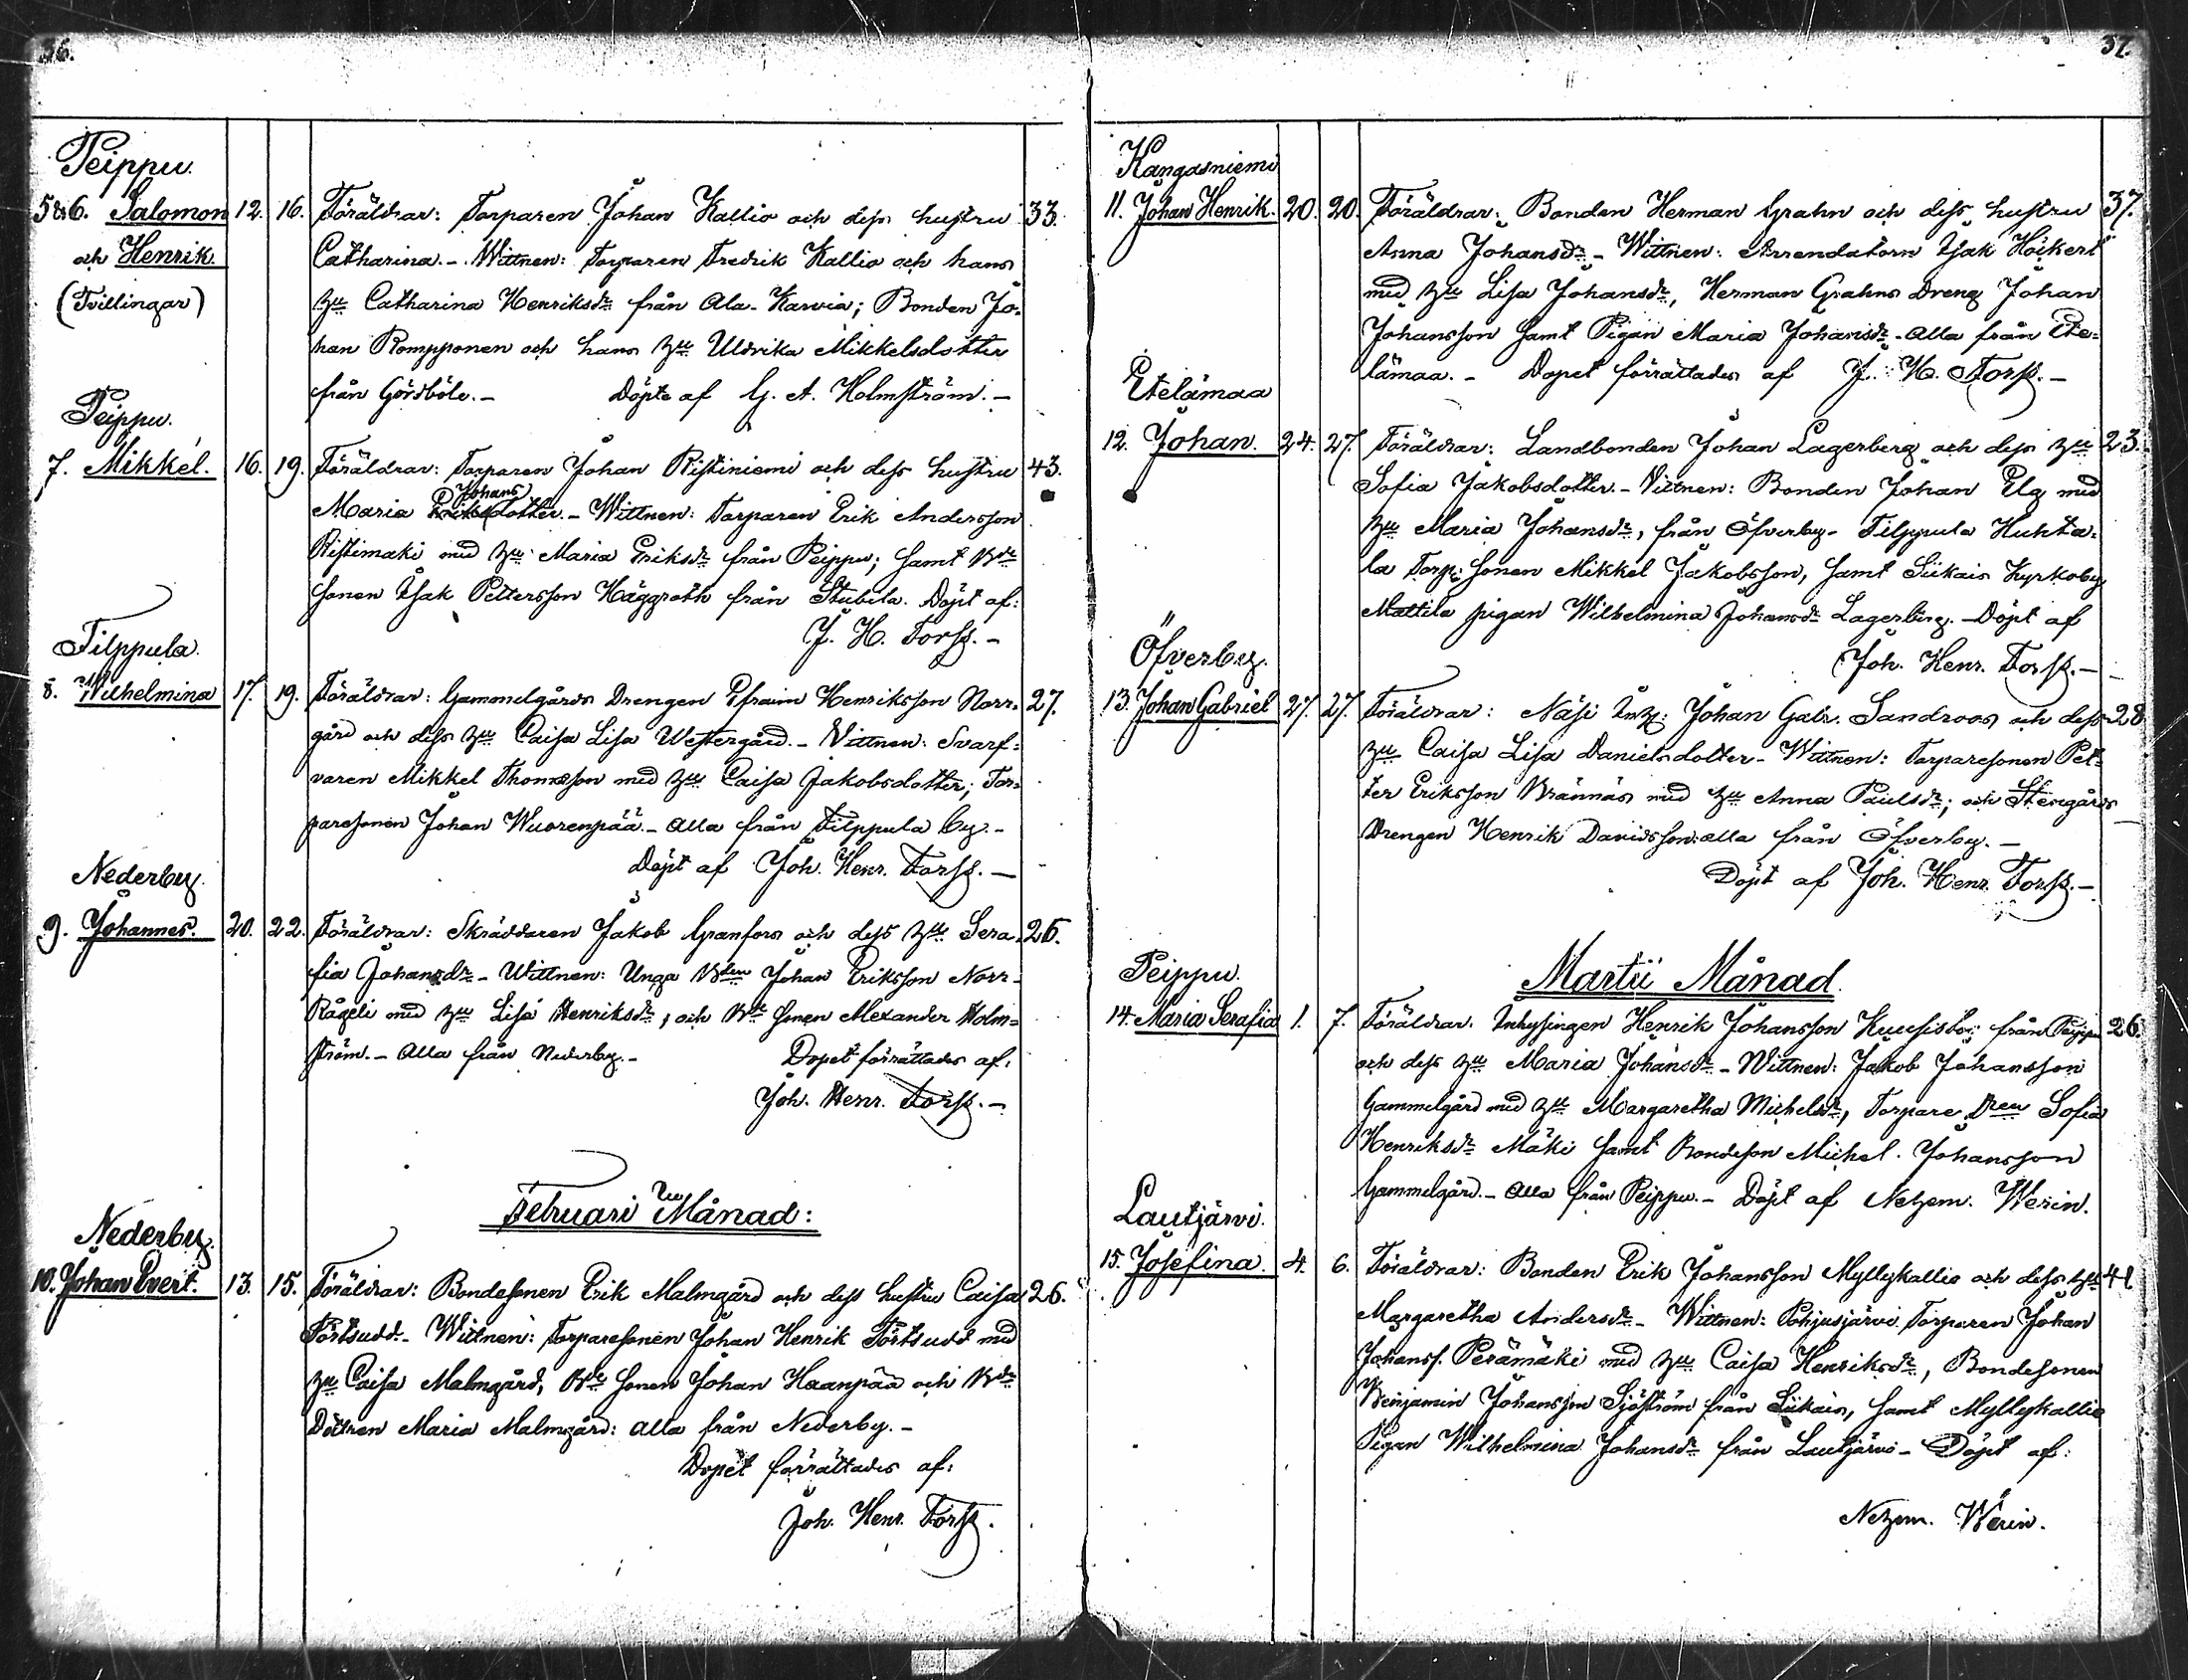 36.
Peippu.
5 & 6. Salomon 12. 16. Föräldrar: Torparen Johan Kallio och dess hustru 33.
och Henrik Catharina. - Wittnen: Torparen Fredrik Kallio och hans
(Tvillingar) hu Catharina Henriksdr från Ala-Karvia; Bonden Jo-
han Rompponen och hans hu Uldrika Mikkelsdotter
från Görsböle. - Döpte af G. A. Holmström. -
Peippu.
7. Mikkel. 16. 19. Föräldrar: Torparen Johan Ristiniemi och dess hustru 43.
Johans
Maria Eriksdotter. - Wittnen: Torparen Erik Andersson
Ristimaki med hu Maria Eriksdr från Peippu; samt Bde
sonen Isak Pettersson Häggroth från Stubila. Döpt af:
J. H. Forss. -
Filppula.
8. Wilhelmina 17. 19. Föräldrar: Gammelgårds Drengen Efraim Henriksson Norr- 27.
gård och dess hu Caisa Lisa Westergård. - Vittnen: Svarf-
varen Mikkel Thomasson med hu Caisa Jakobsdotter; Tor-
paresonen Johan Wuorenpää. - Alla från Filppula by. -
Döpt af Joh. Henr. Forss. -
Nederby.
9. Johannes. 20. 22. Föräldrar: Skräddaren Jakob Granfors och dess hu Sera- 26.
fia Johansdr - Wittnen: Unga Bden Johan Eriksson Norr-
Rågeli med hu Lisa Henriksdr, och Bde sonen Alexander Holm-
ström. - Alla från Nederby. - Dopet förrättades af:
Joh. Henr. Forss. -
Februari Månad:
Nederby.
10. Johan Evert. 13. 15. Föräldrar: Bondesonen Erik Malmgård och dess hustru Caisa 26.
Törtsudd. - Wittnen: Torparesonen Johan Henrik Törtsudd med
hu Caisa Malmgård, Bde sonen Johan Haanpää och Bde
Dottren Maria Malmgård: alla från Nederby. -
Dopet förrättades af:
Joh. Henr. Forss.
37.
Kangasniemi
11. Johan Henrik. 20. 20. Föräldrar: Bonden Herman Grahn och dess hustru 37.
Anna Johansdr - Wittnen: Arrendatorn Isak Höckert
med hu Lisa Johansdr, Herman Grahns Dreng Johan
Johansson samt Pigan Maria Johansdr - Alla från Ete-
lämaa. - Dopet förrättades af J. H. Forss. -
Etelämaa
12. Johan. 24. 27. Föräldrar: Landbonden Johan Lagerberg och dess hu 23.
Sofia Jakobsdotter. - Vittnen: Bonden Johan Elg med
hu Maria Johansdr, från Öfverby - Filppula Huhta-
la Torp. sonen Mikkel Jakobsson, samt Siikais Kyrkoby
Mattila pigan Wilhelmina Johansdr Lagerberg. - Döpt af
Joh. Henr. Forss. -
Öfverby.
13. Johan Gabriel 27. 27. Föräldrar: Näsi Inh: Johan Gabr. Sandroos och dess 28.
hu Caisa Lisa Danielsdotter - Wittnen: Torparesonen Pet-
ter Eriksson Brännäs med hu Anna Paulsdr; och Stengårds
Drengen Henrik Davidsson: alla från Öfverby. -
Döpt af Joh. Henr. Forss. -
Martii Månad.
Peippu.
14. Maria Serafia 1. 7. Föräldrar. Inhysingen Henrik Johansson Kuusisto: från Peippu 26.
och dess hu Maria Johansdr - Wittnen: Jakob Johansson
Gammelgård med hu Margaretha Michelsdr, Torpare Dren Sofia
Henriksdr Mäki samt Bondeson Michel Johansson
Gammelgård. - Alla från Peippu. - Döpt af Nehem. Werin.
Lautjärvi.
15. Josefina. 4. 6. Föräldrar: Bonden Erik Johansson Myllykallio och dess hu 41
Margaretha Andersdr - Wittnen: Pohjusjärvi Torparen Johan
Johanss. Perämäki med hu Caisa Henriksdr, Bondesonen
Benjamin Johansson Sjöström från Siikais, samt Myllykallio
Pigan Wilhelmina Johansdr från Lautjärvi - Döpt af:
Nehem. Werin.